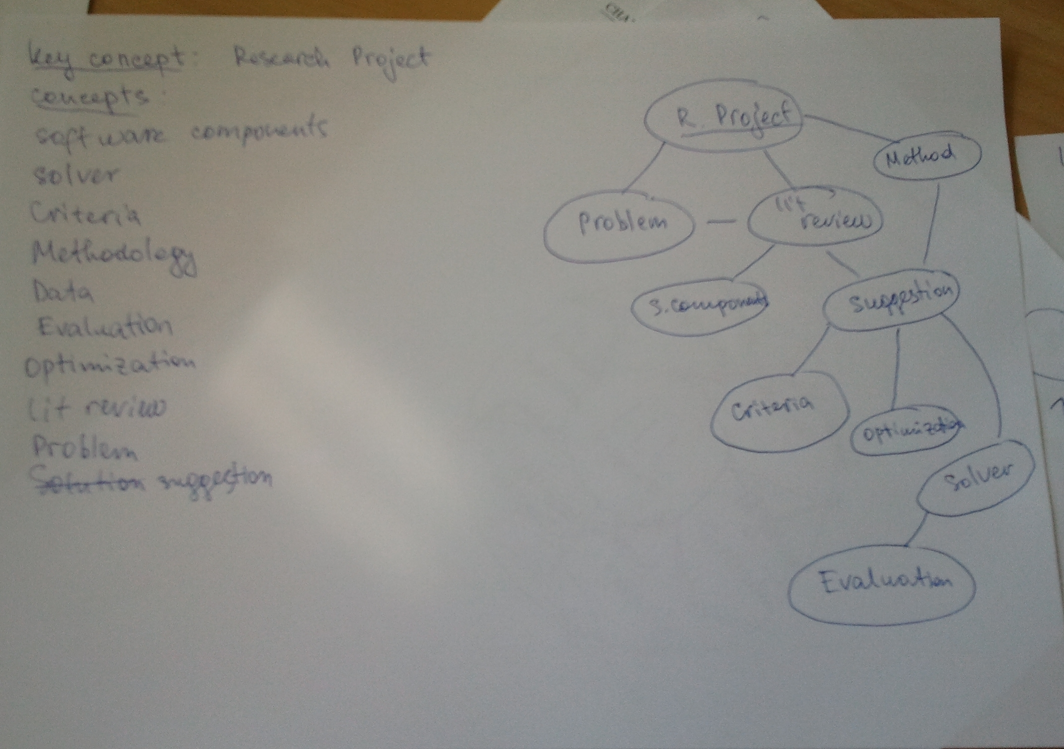 CHA
Key concept: Research Project
concepts:
software components
solver
Criteria
Methodology
Data
Evaluation
Optimization
lit review
Problem
Solution suggestion
R. Project
Method
Problem
lit
review
S. components
Suggestion
Criteria
Optimization
Solver
Evaluation